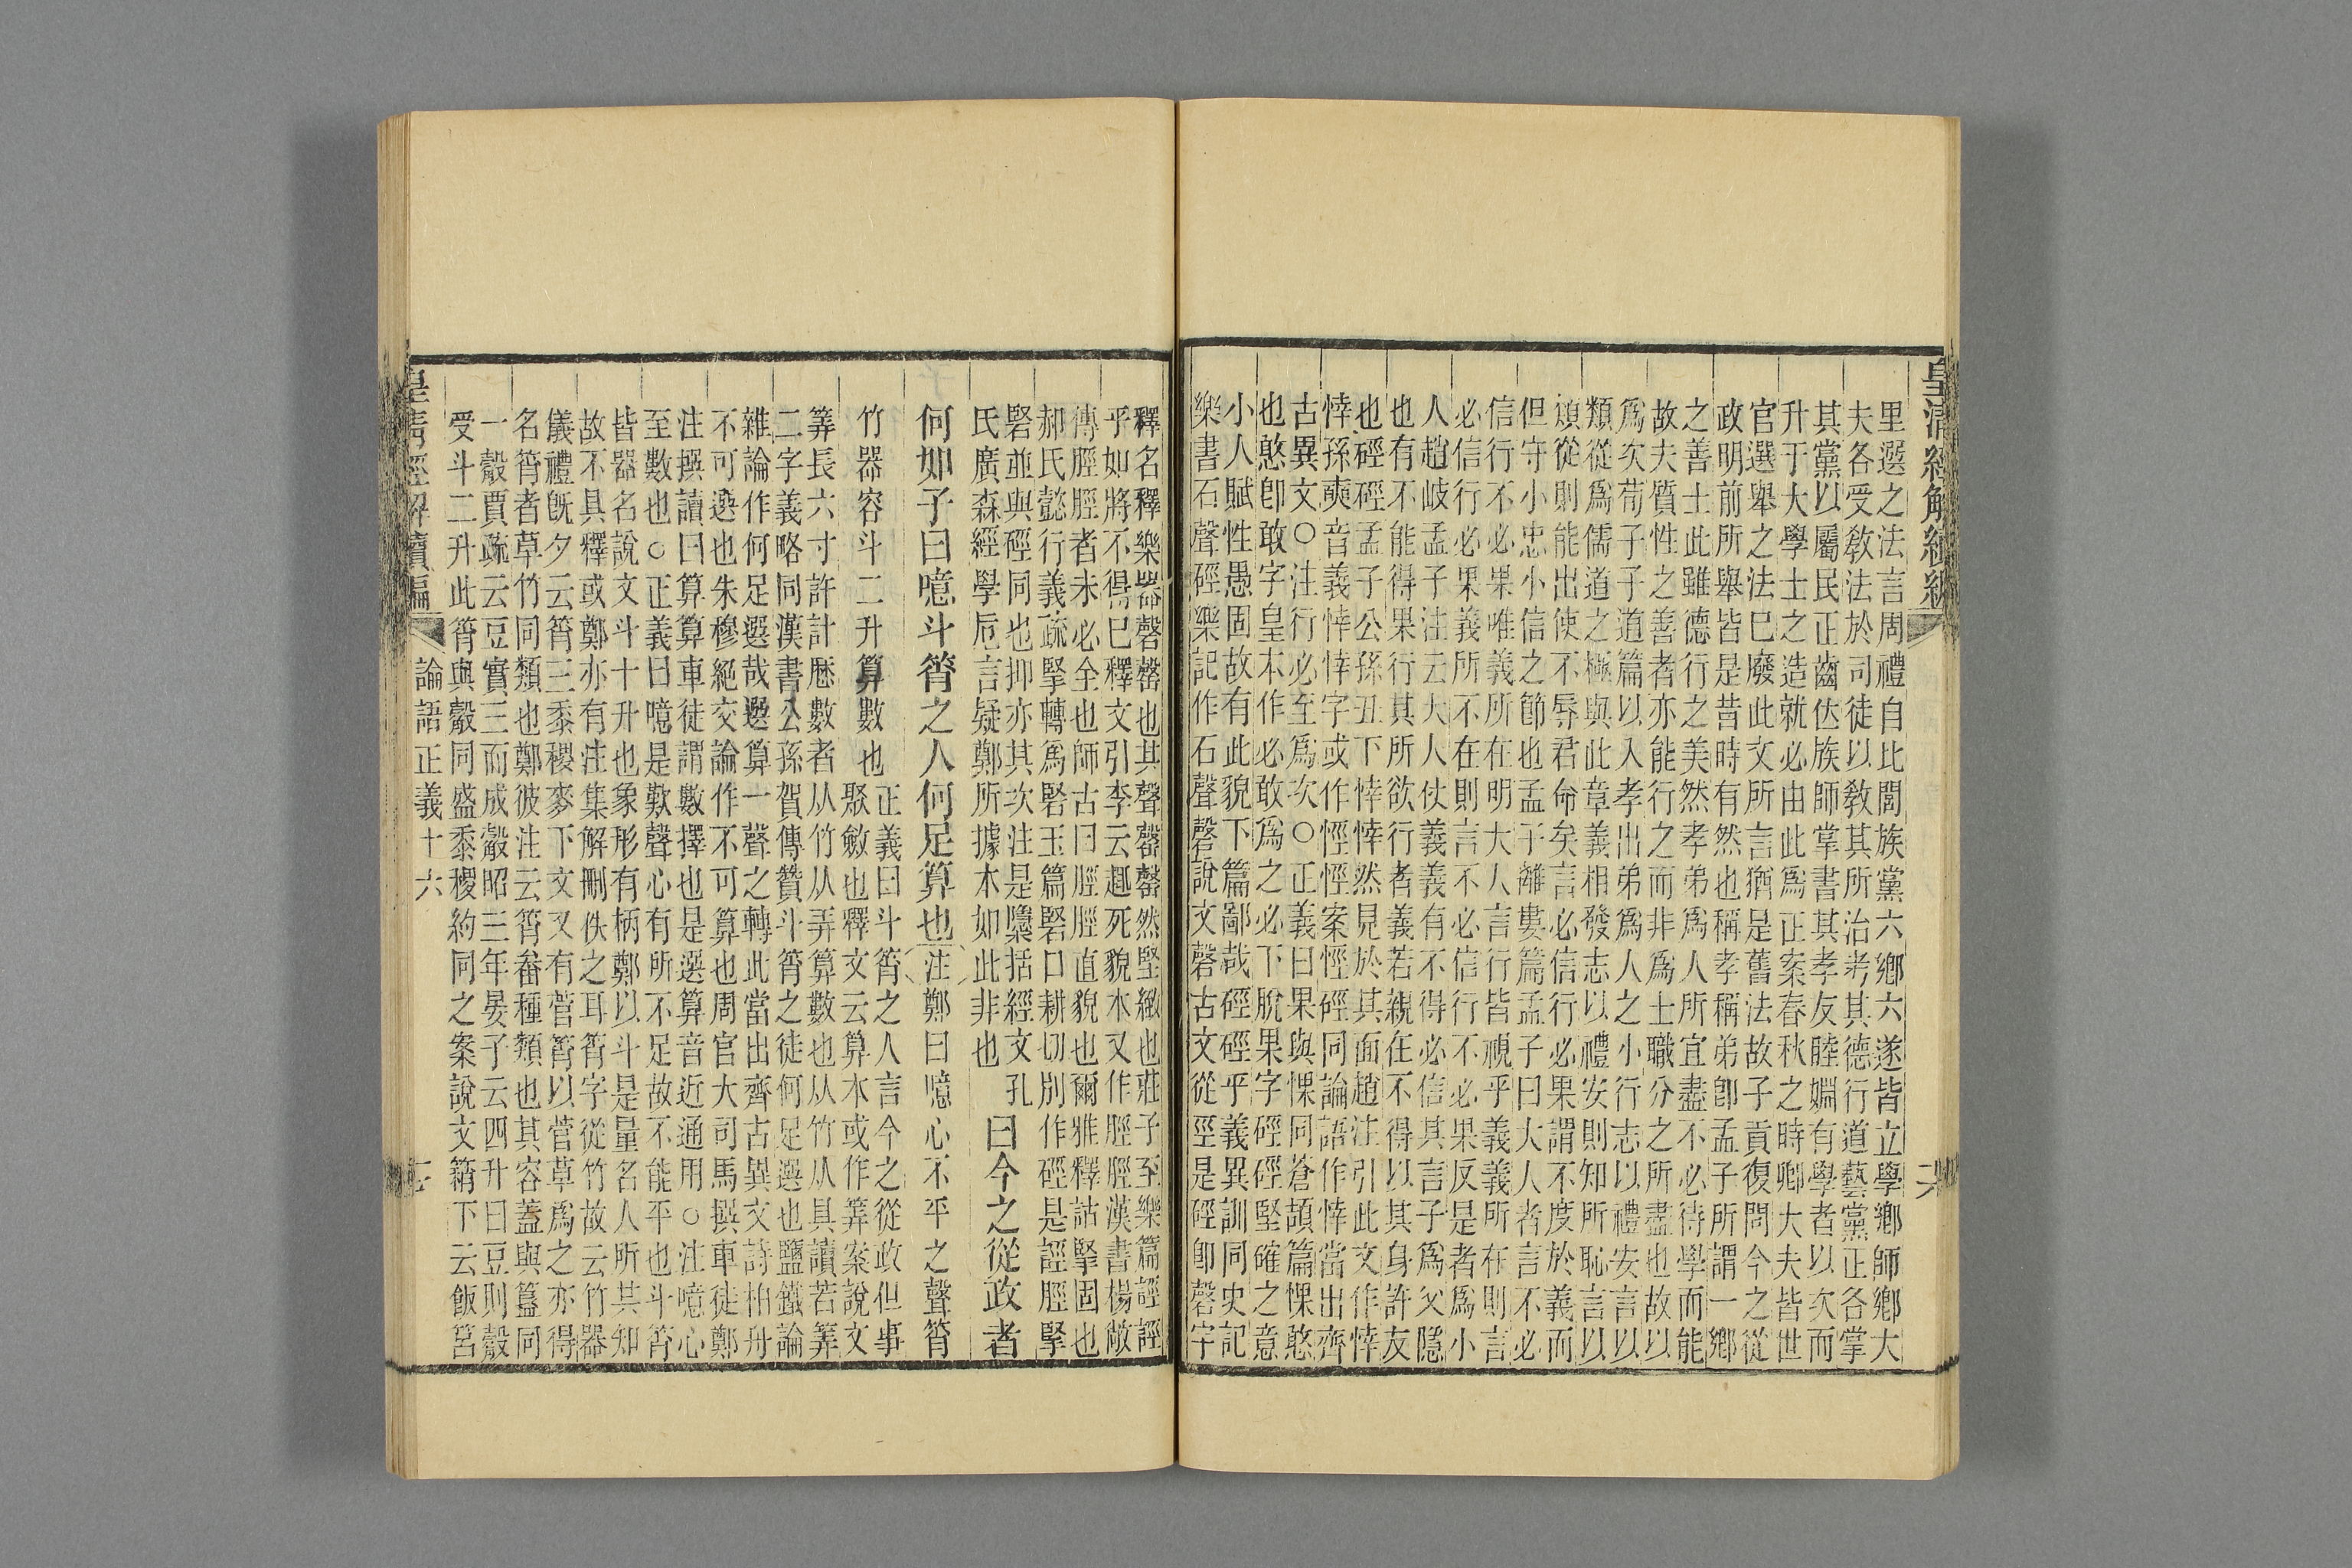 皇清經解續編
六
里選之法言周禮自比閭族黨六鄉六遂皆立學鄉師鄉大
夫各受敎法於司徒以敎其所治考其德行道藝黨正各掌
其黨以屬民正齒位族師掌書其孝友睦婣有學者以次而
升于大學士之造就必由此爲正案春秋之時卿大夫皆世
官選舉之法已廢此文所言猶是舊法故子貢復問今之從
政明前所舉皆是昔時有然也稱孝稱弟卽孟子所謂一鄉
之善士此雖德行之美然孝弟爲人所宜盡不必待學而能
故夫質性之善者亦能行之而非爲士職分之所盡也故以
爲次荀子子道篇以入孝出弟爲人之小行志以禮安言以
類從爲儒道之極與此章義相發志以禮安則知所恥言以
類從則能出使不辱君命矣言必信行必果謂不度於義而
但守小忠小信之節也孟子離婁篇孟子曰大人者言不必
信行不必果唯義所在明大人言行皆視乎義義所在則言
必信行必果義所不在則言不必信行不必果反是者爲小
人趙岐孟子注云大人仗義義有不得必信其言子爲父隱
也有不能得果行其所欲行者義若親在不得以其身許友
也硜硜孟子公孫丑下悻悻然見於其面趙注引此文作悻
悻孫奭音義悻悻字或作悻悻案悻硜同論語作悻當出齊
古異文○注行必至爲次○正義曰果與惈同蒼頡篇惈憨
也憨卽敢字皇本作必敢爲之必下脫果字硜硜堅確之意
小人賦性愚固故有此貌下篇鄙哉硜硜乎義異訓同史記
樂書石聲硜樂記作石聲磬說文磬古文從巠是硜卽磬字
釋名釋樂器磬罄也其聲罄罄然堅緻也莊子至樂篇誙誙
乎如將不得已釋文引李云趣死貌本又作脛脛漢書楊敞
傳脛脛者未必全也師古曰脛脛直貌也爾雅釋詁掔固也
郝氏懿行義疏掔轉爲硻玉篇硻口耕切別作硜是誙脛掔
硻並與硜同也抑亦其次注是檃括經文孔
氏廣森經學卮言疑鄭所據本如此非也
曰今之從政者
何如子曰噫斗筲之人何足算也注鄭曰噫心不平之聲筲
竹器容斗二升算數也
正義曰斗筲之人言今之從政但事
聚斂也釋文云算本或作筭案說文
筭長六寸許計歷數者从竹从弄算數也从竹从具讀若筭
二字義略同漢書公孫賀傳贊斗筲之徒何足選也鹽鐵論
雜論作何足選哉選算一聲之轉此當出齊古異文詩柏舟
不可選也朱穆絕交論作不可算也周官大司馬撰車徒鄭
注撰讀曰算算車徒謂數擇也是選算音近通用○注噫心
至數也○正義曰噫是歎聲心有所不足故不能平也斗筲
皆器名說文斗十升也象形有柄鄭以斗是量名人所共知
故不具釋或鄭亦有注集解刪佚之耳筲字從竹故云竹器
儀禮旣夕云筲三黍稷麥下文又有菅筲以菅草爲之亦得
名筲者草竹同類也鄭彼注云筲畚種類也其容蓋與簋同
一觳賈疏云豆實三而成觳昭三年晏子云四升曰豆則觳
受斗二升此筲與觳同盛黍稷約同之案說文䈰下云飯筥
皇淸經解續編
論語正義十六
七